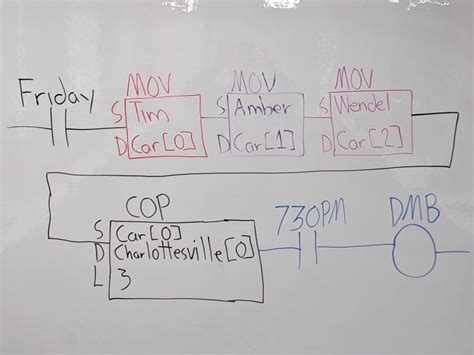 Friday
MOV
S Tim
D Car[0]
MOV
S Amber
D Car[1]
MOV
S Wendel
D Car[2]
COP
S Car[0]
D Charlottesville[0]
L 3
730PM
DMB